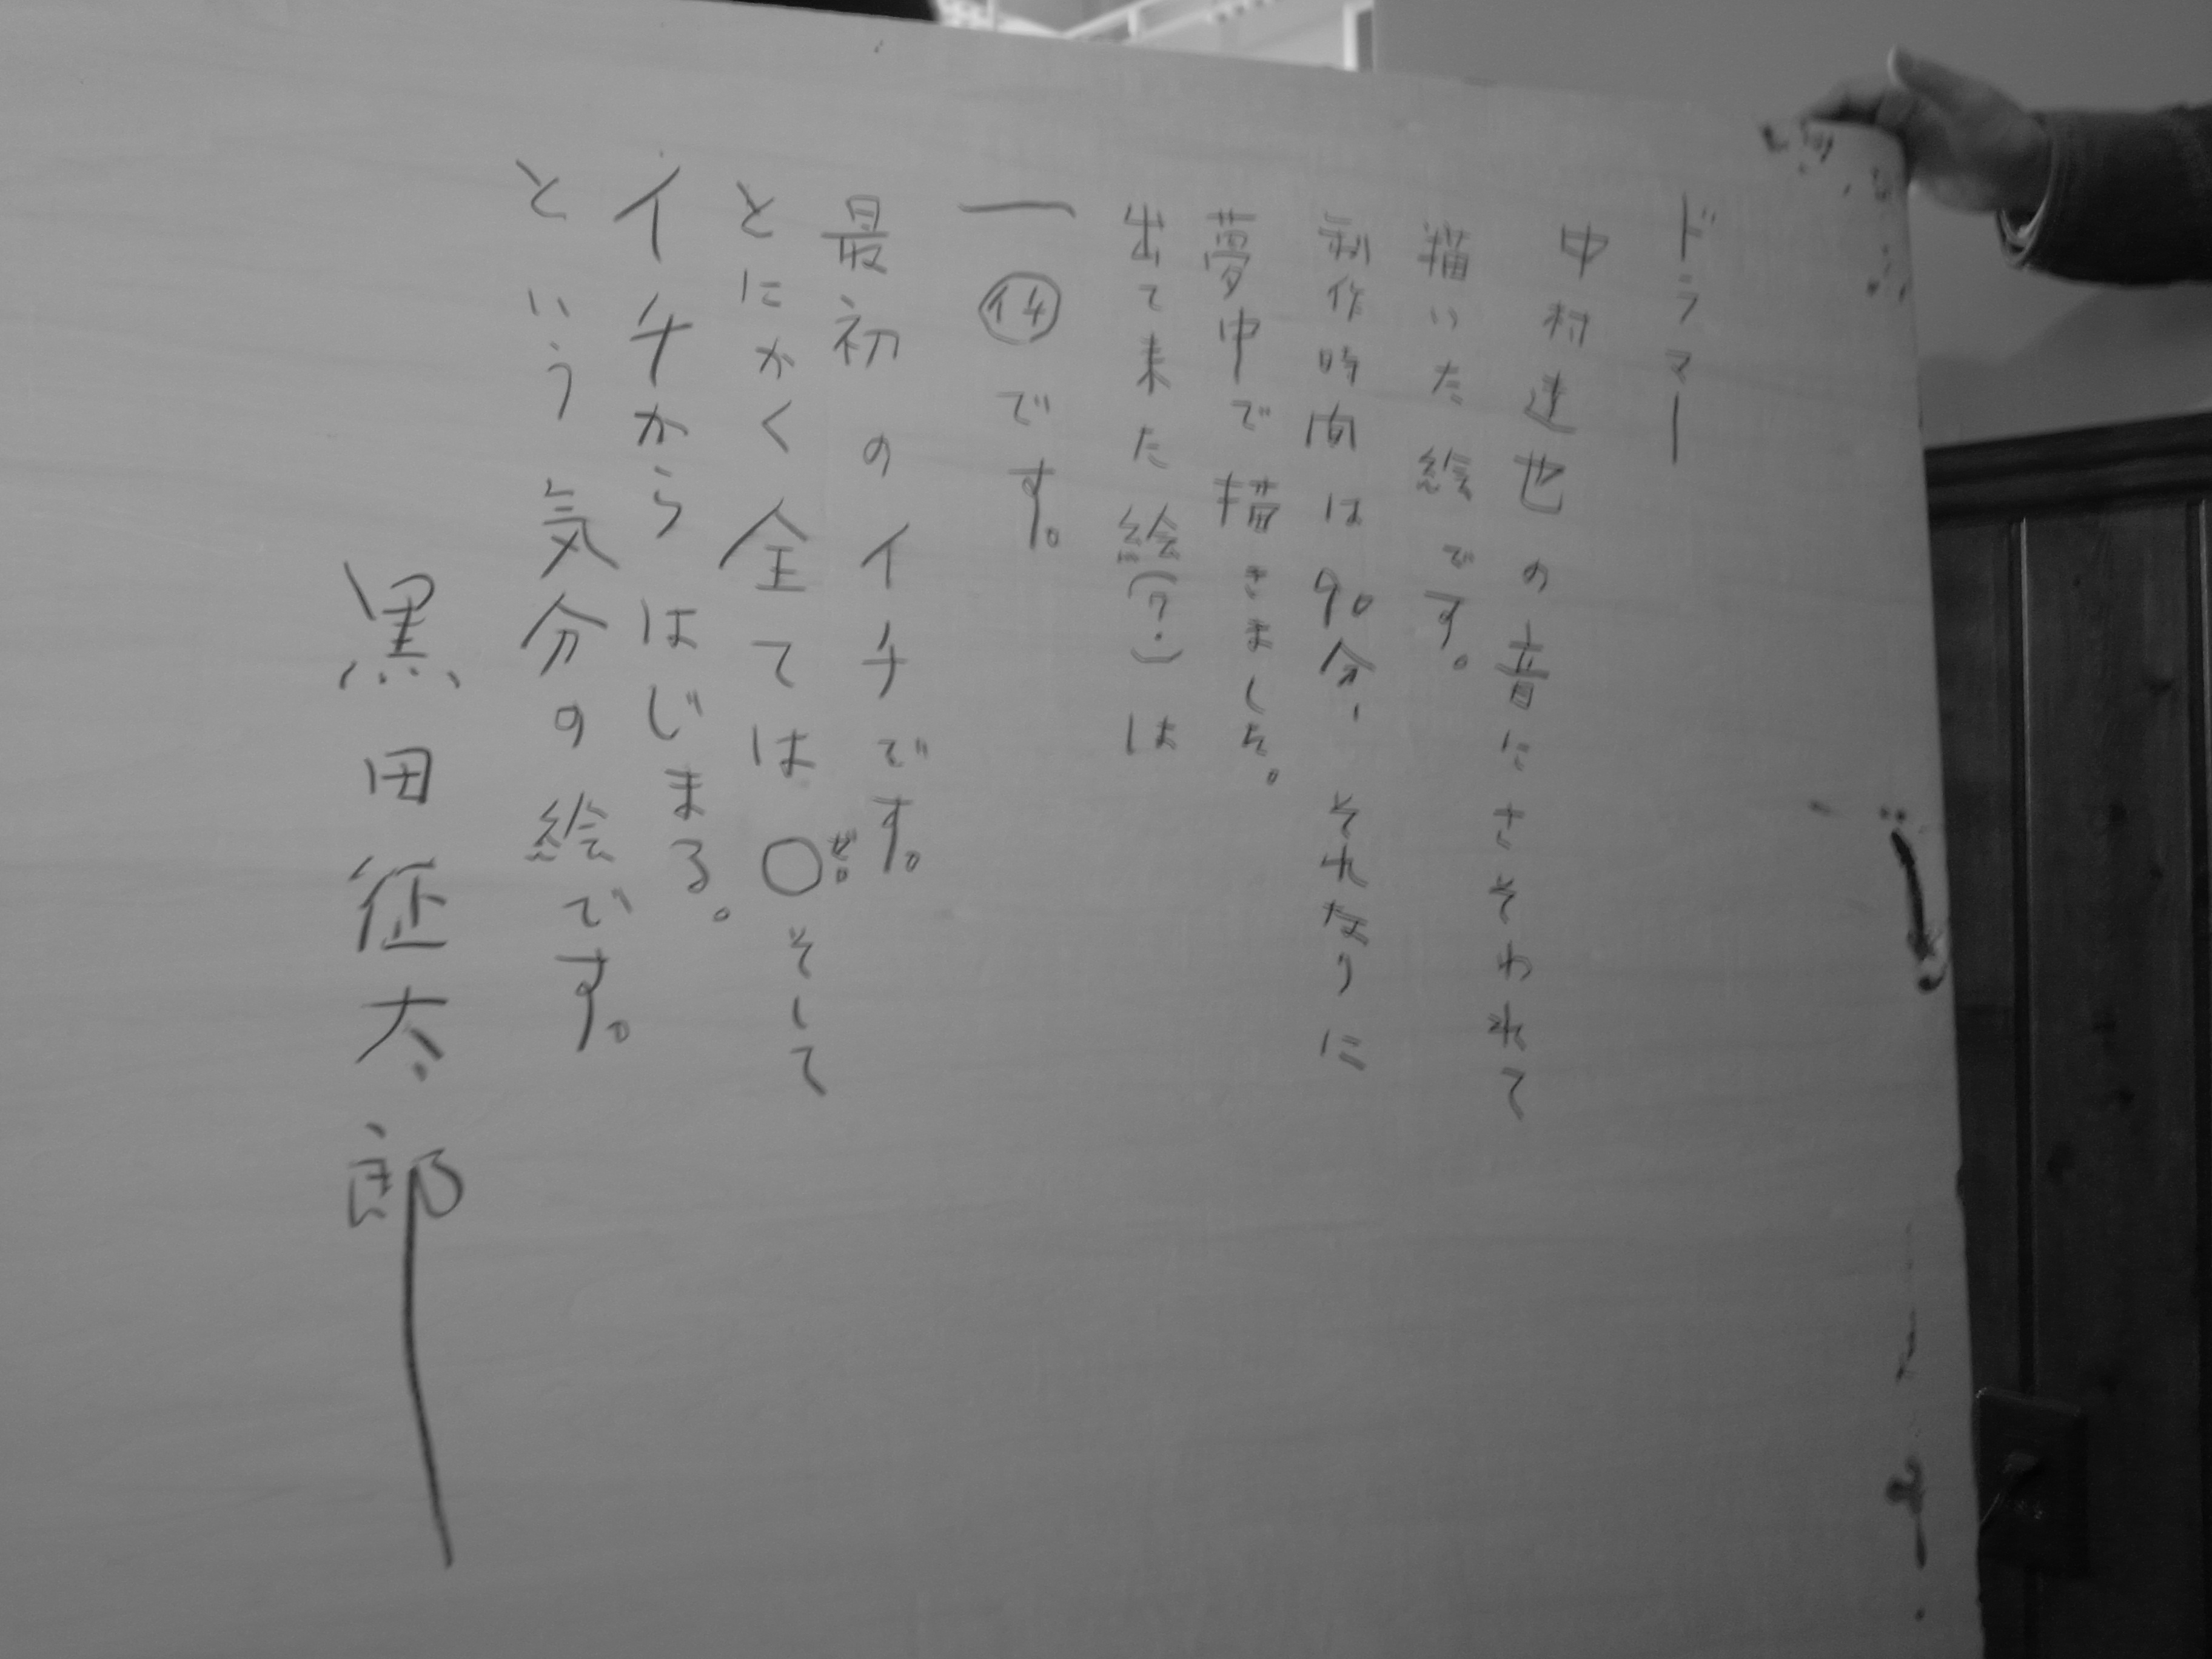 ドラマー
中村達也の音にさそわれて
描いた絵です。
制作時間は90分、それなりに
夢中で描きました。
出て来た絵(?)は
一(イチ)です。
最初のイチです。
とにかく全ては〇そして
ゼロ
イチからはじまる。
という気分の絵です。
黒田征太郎